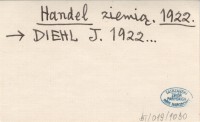 Handel ziemią. 1922.
→ DIEHL J. 1922...
b/019/1080